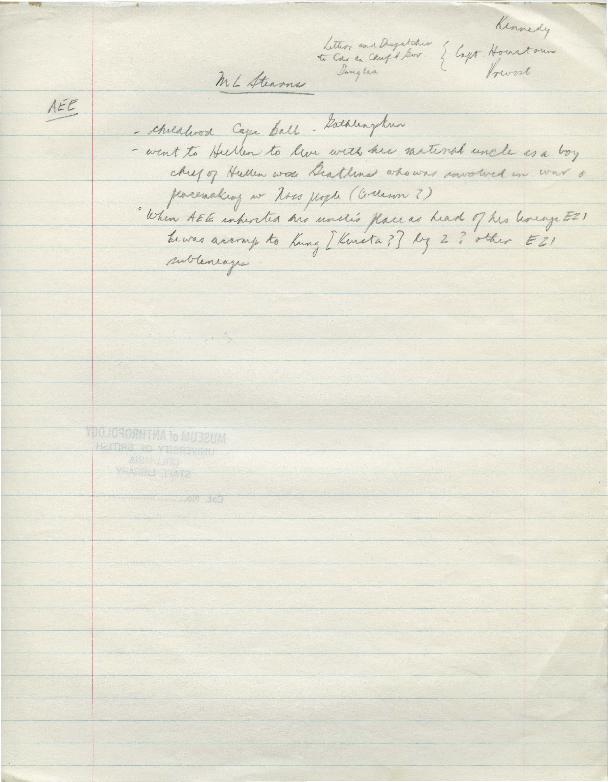 Kennedy
Letters and Despatches
to Com in Chief & Gov { Capt Houstoun
Douglas Prevost
M L Stearns
AEE
- childhood Cape Ball -
- went to Hiellen to live with his maternal uncle as a boy
chief of Hiellen was who was involved in war &
peacemaking w Nass people ( ?)
" When AEE inherited his uncle's place as head of his lineage E21
he was accomp to Kung [ ?] by 2 ? other E21
sublineages
MUSEUM of ANTHROPOLOGY
UNIVERSITY OF BRITISH
COLUMBIA
STAFF LIBRARY
Cat. No.